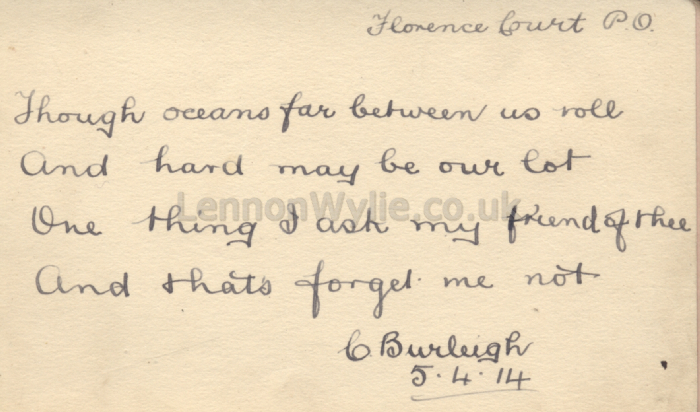 Florence Court P.O.
Though oceans far between us roll
And hard may be our lot
LennonWylie.co.uk
One thing I ask my friend of thee
And thats forget me not
C Burleigh
5.4.14